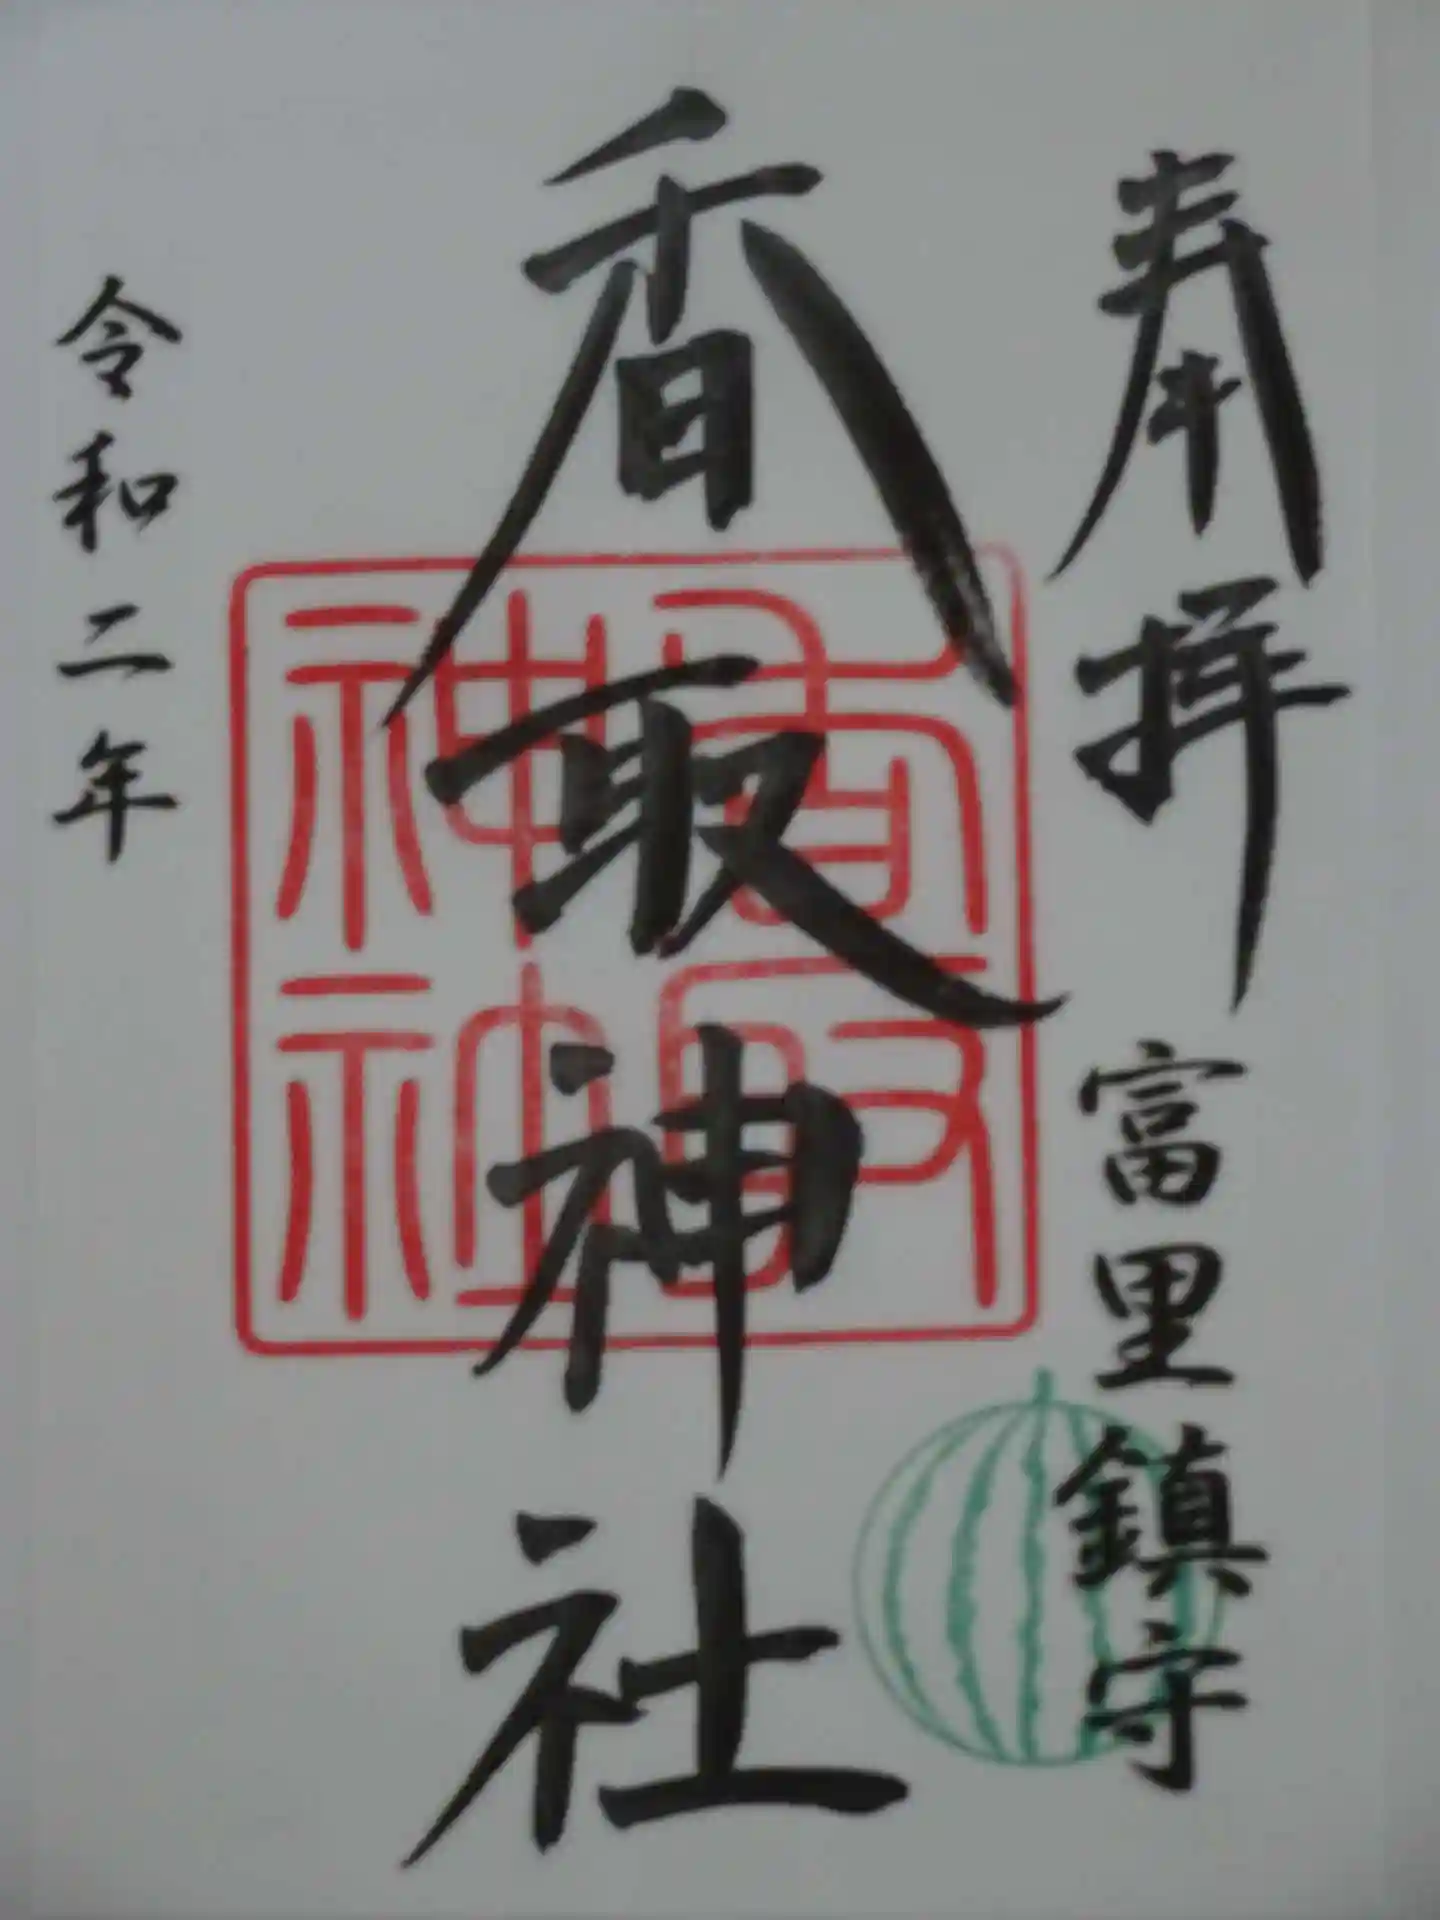 奉拝 富里鎮守
香取神社
香取神社
令和二年